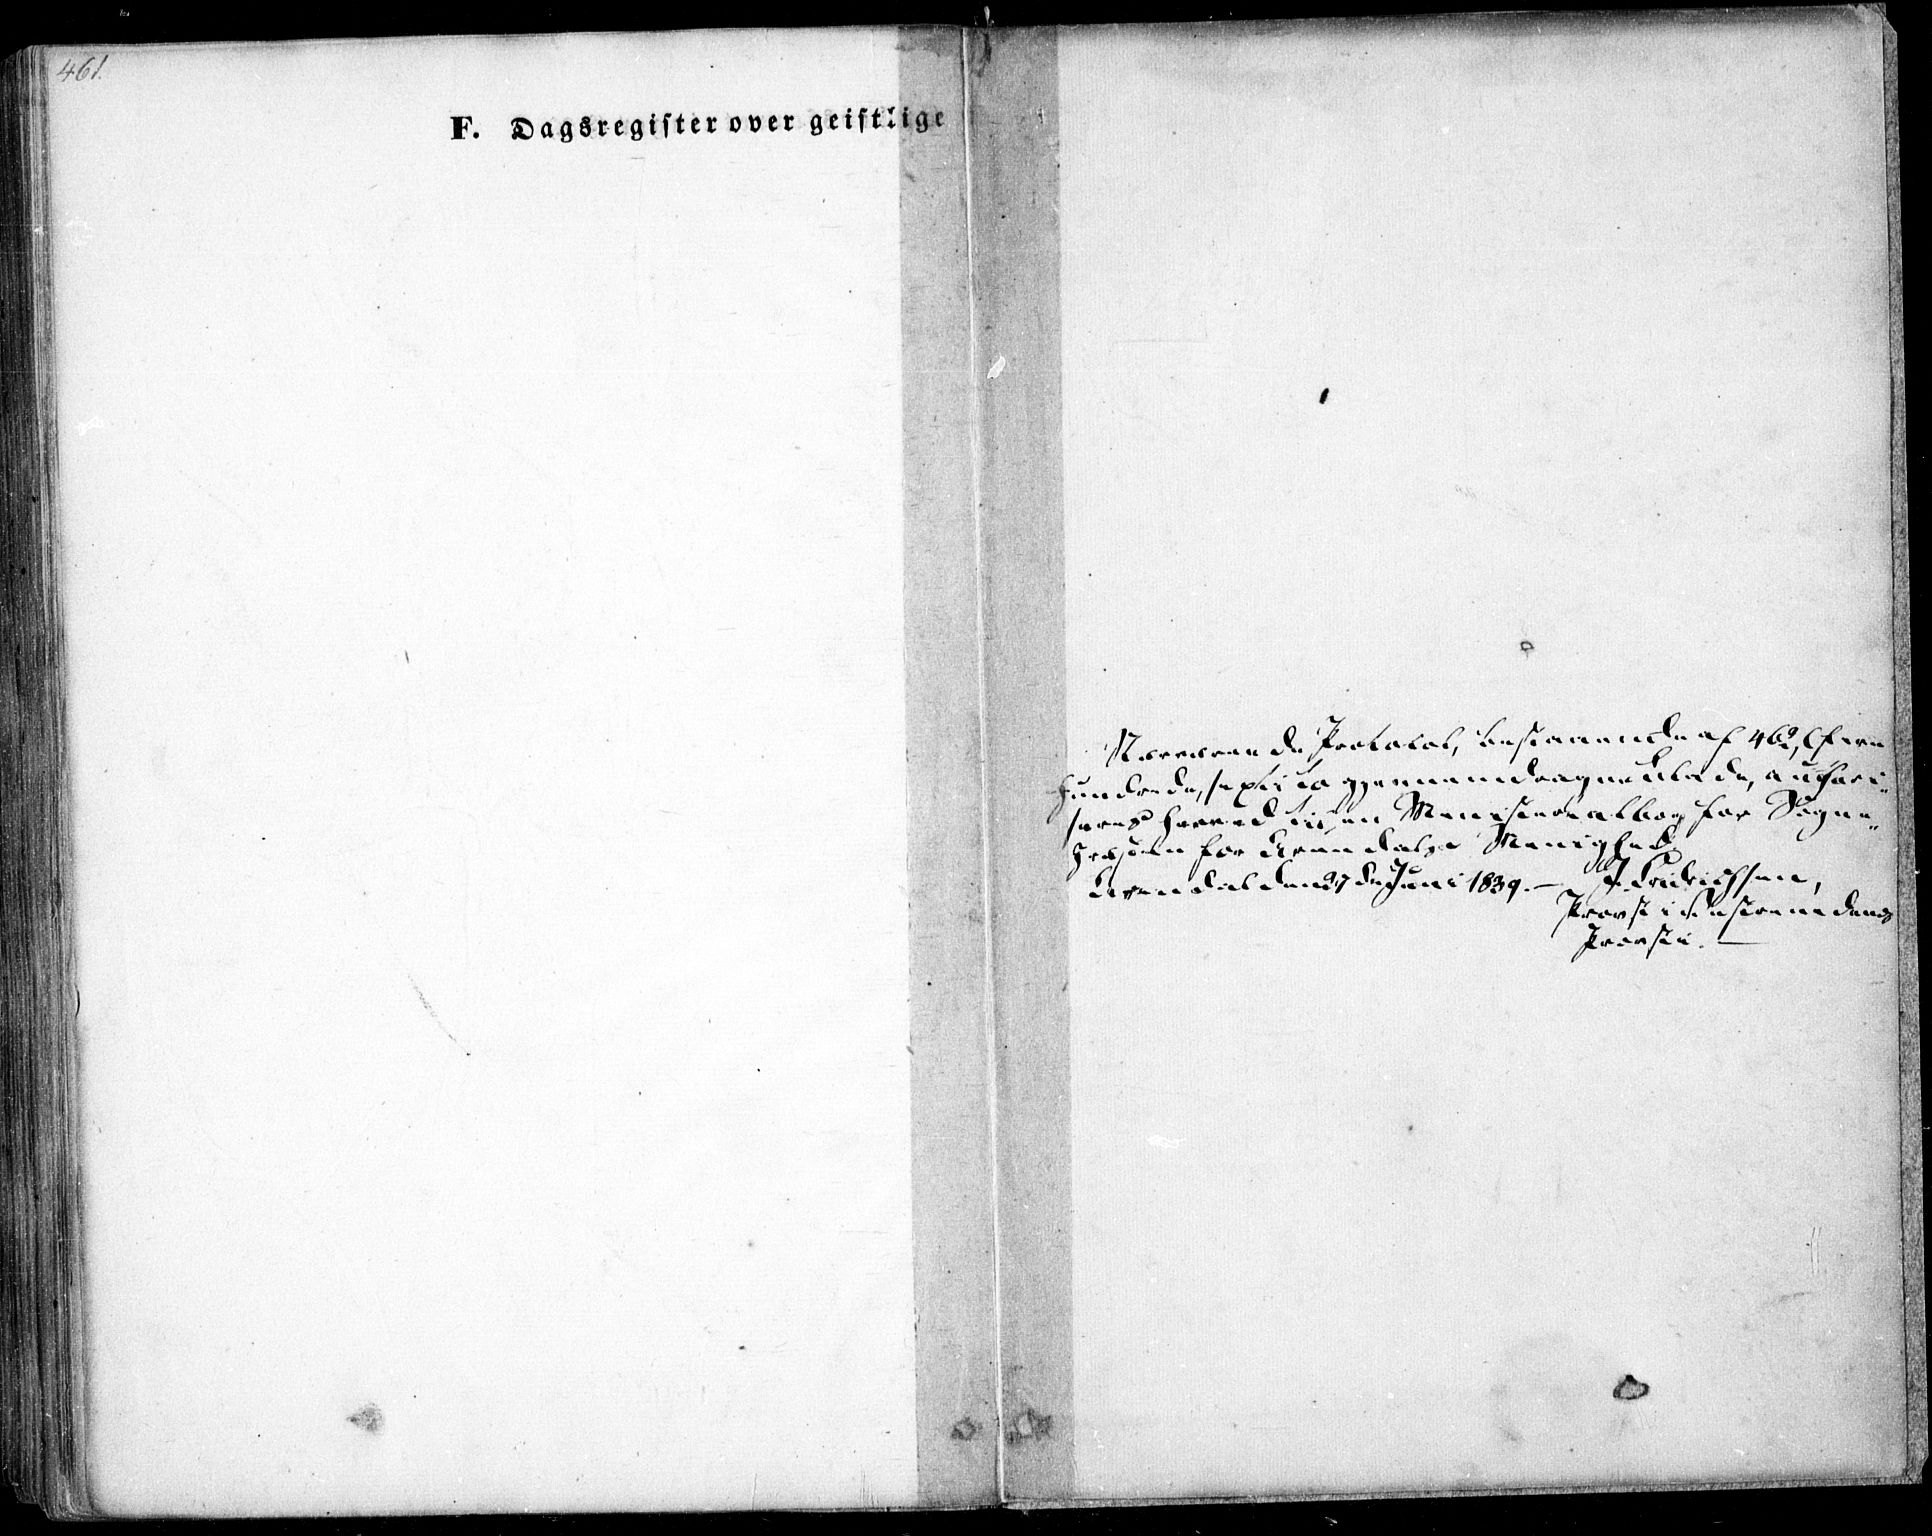 461.
F. Dagsregister over geistlige
Nærværende Protocol, bestaaende af 462, (fire
hundrede, sexti to gjennemdragne Blade, authori-
seres herved til en Ministerialbog for Sogne-
præsten for Arendals Menighed.
Arendal den 27de Juni 1839. — Fridrichsen,
Provst i Vestre Nedenæs
Provsti. —